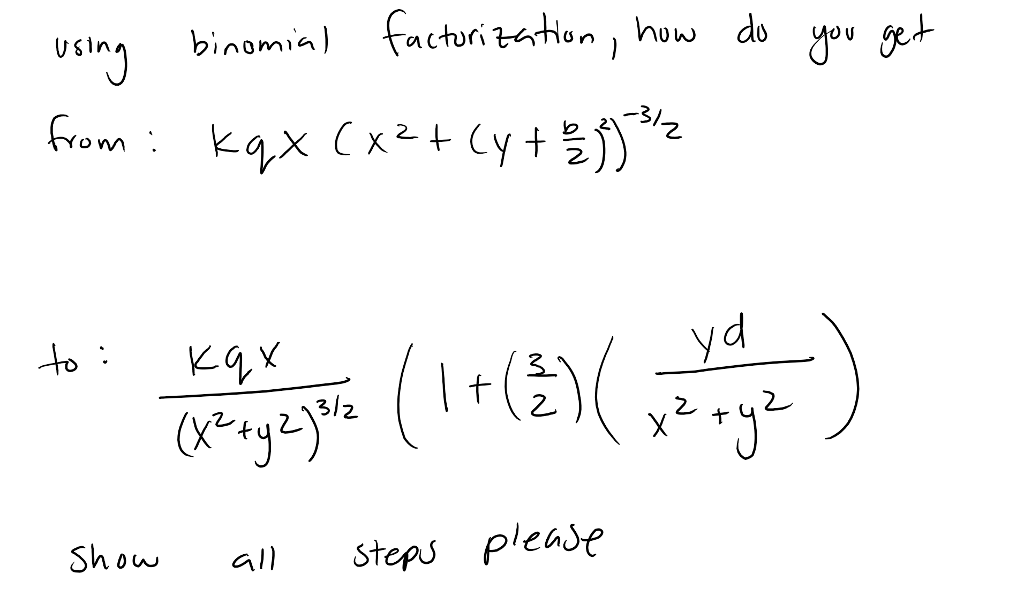 using binomial factorization, how do you get
from: kqx (x² + (y + b/2)²)^-3/2
to: kqx/(x²+y²)^3/2 (1 + (3/2)(yd/x²+y²)
Show all steps please